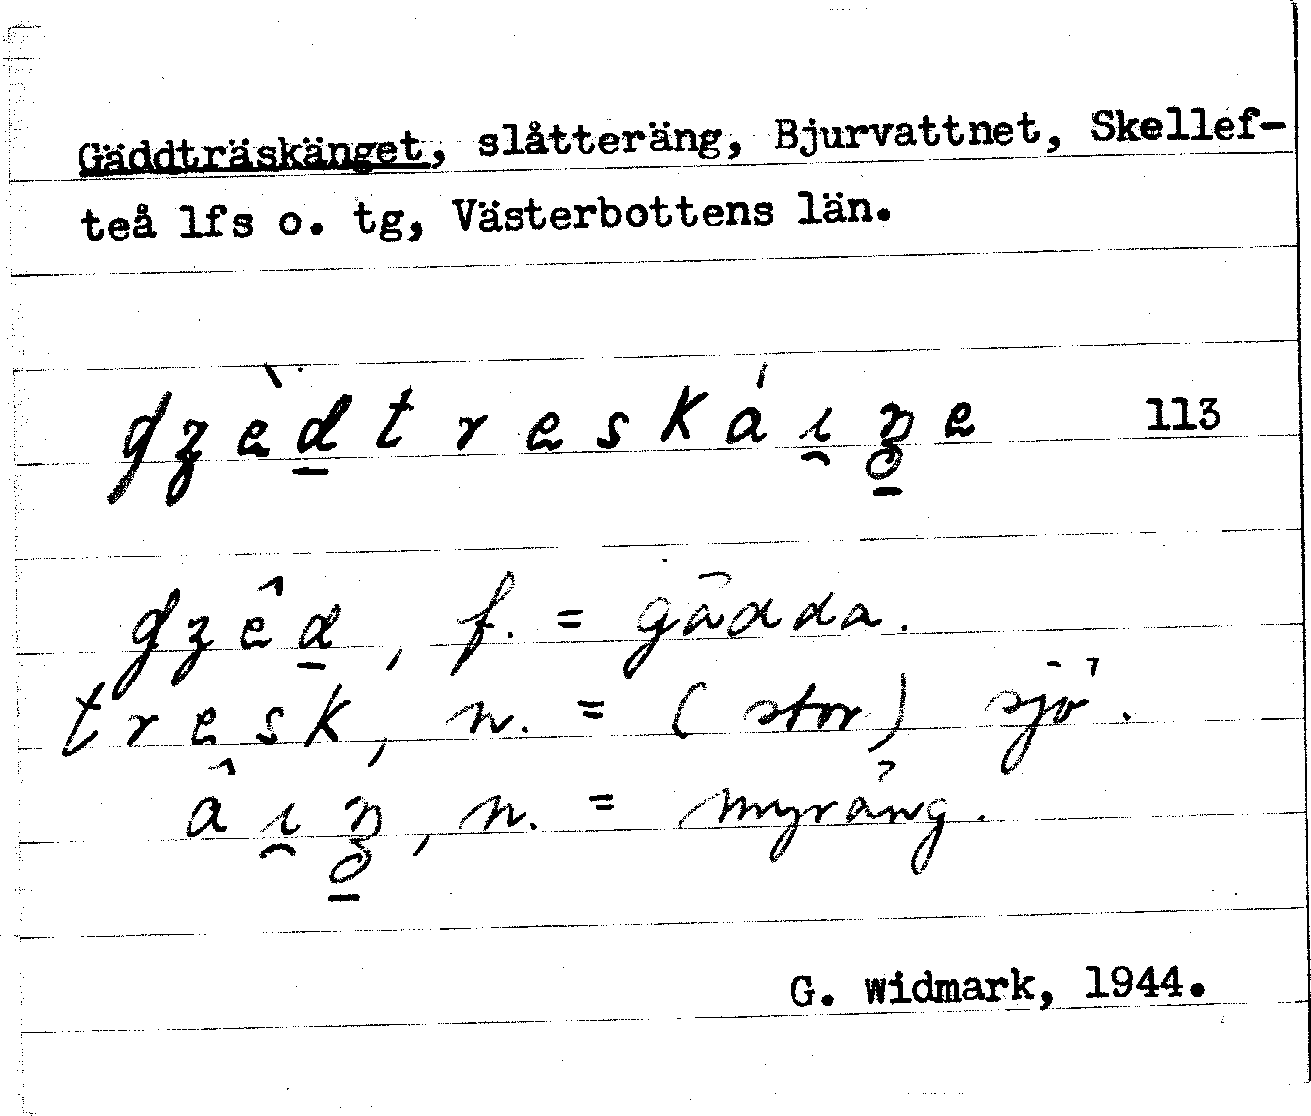 Gäddträskänget, slåtteräng, Bjurvattnet, Skellef-
teå lfs o. tg, Västerbottens län.
gʒèd̲treskái̯ŋ̲e 113
gʒêd̲, f. = gädda.
tresk, n. = (stor) sjö.
âi̯ŋ̲, n. = myräng.
G. Widmark, 1944.